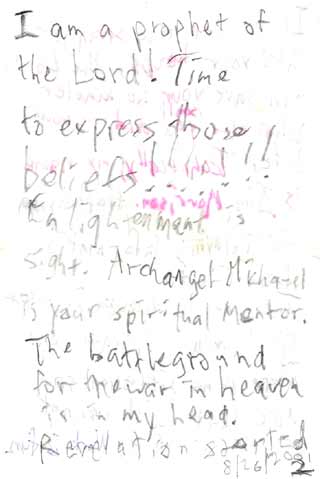 I am a prophet of
the Lord! Time
to express those
beliefs!.....!!
Enlightenment is
sight. Archangel Mikhael
is your spiritual mentor.
The battleground
for the war in heaven
is in my head.
Revelation started
8/26/2